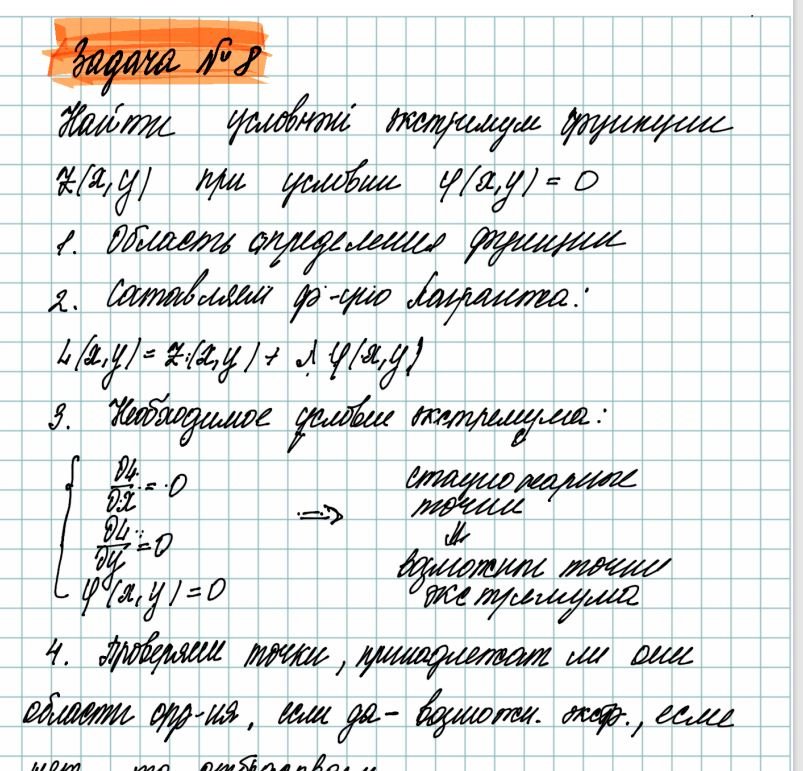 Задача № 8
Найти условный экстремум функции
Z(x,y) при условии φ(x,y) = 0
1. Область определения функции
2. Составляем ф-цию Лагранжа:
L(x,y) = Z(x,y) + λ φ(x,y)
3. Необходимое условие экстремума:
∂L/∂x = 0
∂L/∂y = 0
φ(x,y) = 0
⇒
стационарные
точки
⇓
возможные точки
экстремума
4. Проверяем точки, принадлежат ли они
области опр-ия, если да – возможн. экстр., если
нет, то отбрасываем